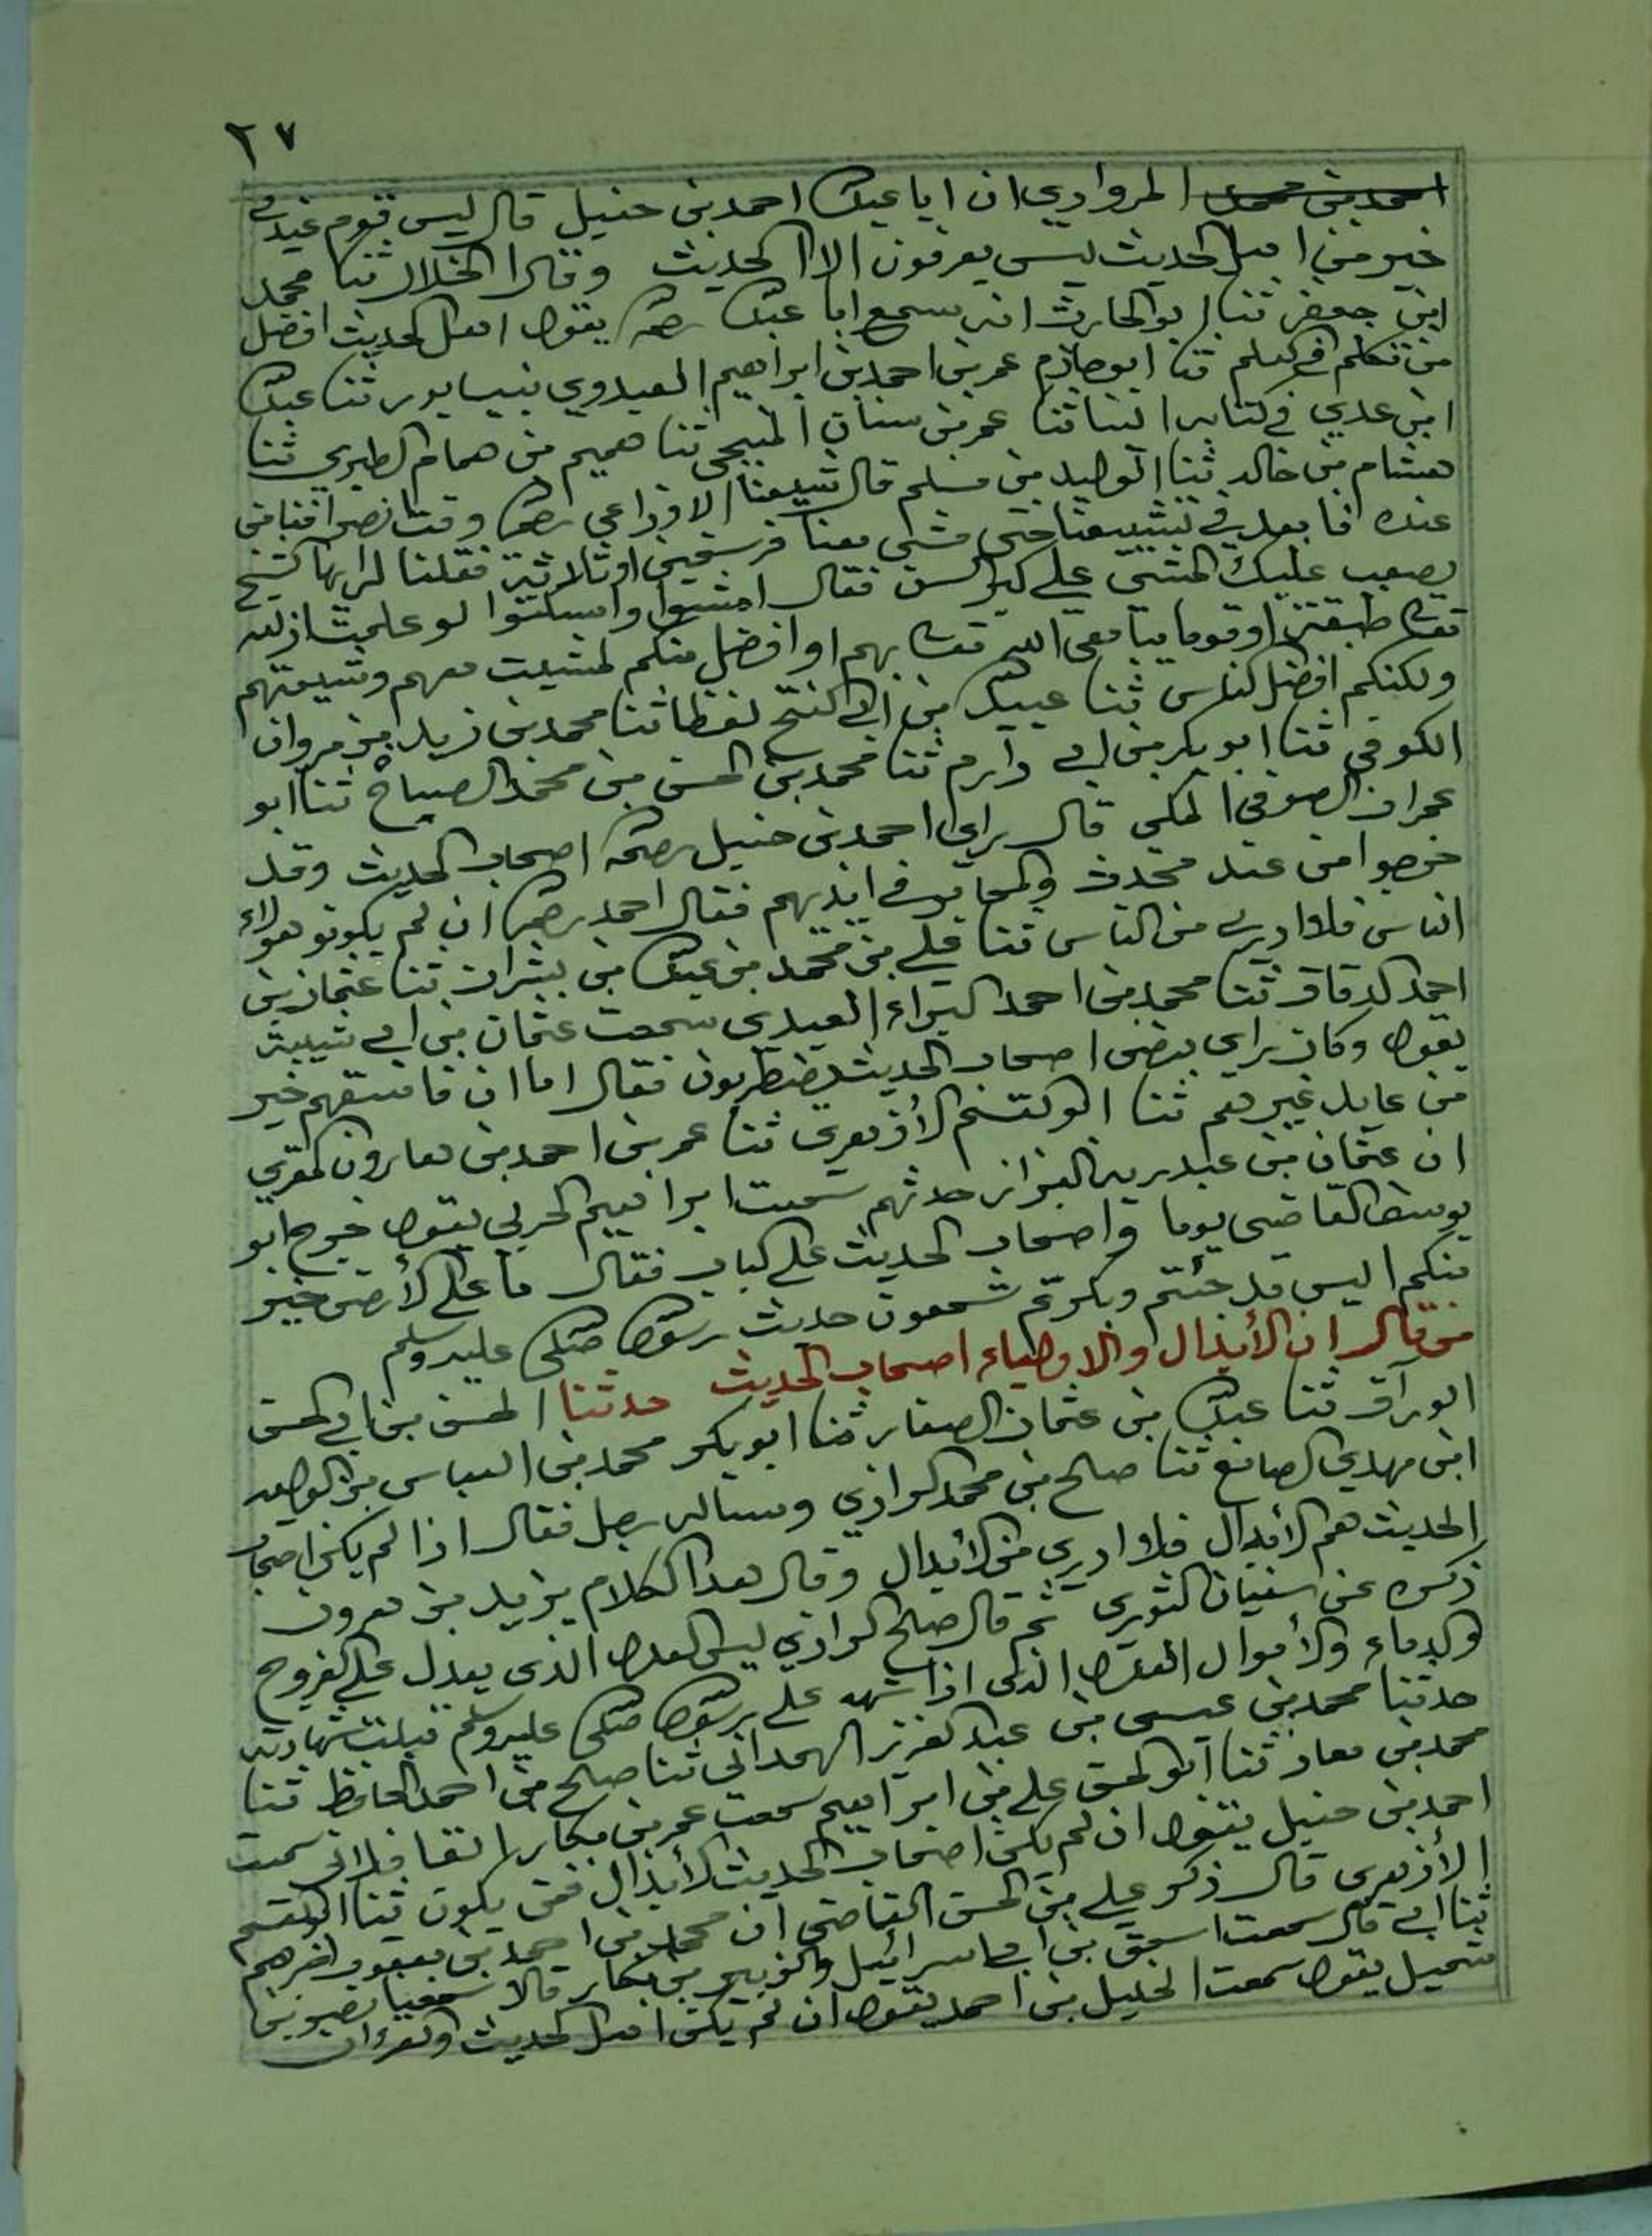 ٢٧
المروادي ان ابا عبدالله احمد بن حنبل قال ليس قوم عندي
خير من اهل الحديث ليس يعرفون الا الحديث وقال الخلال ثنا محمد
ابن جعفر ثنا ابو الحارث انه سمع ابا عبدالله يقول اهل الحديث افضل
من تكلم في العلم ثنا ابو حازم عمر بن احمد بن ابراهيم العبدوي بنيسابور ثنا عبدالله
ابن عدي في كتابه الينا ثنا عمر بن سنان المنبجي ثنا هميم بن همام الطبري ثنا
هشام بن خالد ثنا الوليد بن مسلم قال شيعنا الاوزاعي وقت انصرافنا من
عنده فابعد في تشييعنا حتى مشى معنا فرسخين او ثلاثة فقلنا له ايها الشيخ
يصعب عليك المشي على كبر السن فقال امشوا واسكتوا لو علمت ان لله
طبقة او قوما يباهي الله بهم او افضل منكم لمشيت معهم وشيعتهم
ولكنكم افضل الناس ثنا عبيدالله بن ابي الفتح لفظا ثنا محمد بن زيد بن مروان
الكوفي ثنا ابو بكر بن ابي دارم ثنا محمد بن الحسن بن محمد الصباح ثنا ابو
عمران الصوفي المكي قال راى احمد بن حنبل اصحاب الحديث وقد
خرجوا من عند محدث والمحابر في ايديهم فقال احمد ان لم يكونو هولاء
الناس فلا ادري من الناس ثنا علي بن محمد بن عبدالله بن بشران ثنا عثمان بن
احمد الدقاق ثنا محمد بن احمد البراء العبدي سمعت عثمان بن ابي شيبة
يقول وكان راى بعض اصحاب الحديث يضطربون فقال اما ان فاسقهم خير
من عابد غيرهم ثنا ابو القسم الأزهري ثنا عمر بن احمد بن هارون المقري
ان عثمان بن عبدويه البزاز حدثهم سمعت ابراهيم الحربي يقول خرج ابو
يوسف القاضي يوما واصحاب الحديث على الباب فقال ما على الأرض خير
منكم اليس قد جئتم وبكرتم تسمعون حديث رسول الله صلى عليه وسلم
من قال ان الأبدال والاولياء اصحاب الحديث حدثنا الحسن بن ابي الحسن
الوراق ثنا عبدالله بن عثمان الصفار ثنا ابو بكر محمد بن العباس بن الوليد
ابن مهدي الصائغ ثنا صالح بن محمد الرازي وساله رجل فقال اذا لم يكن اصحاب
الحديث هم الأبدال فلا ادري من الأبدال وقال هذا الكلام يزيد بن هرون
ذكره عن سفيان الثوري ثم قال صلح الرازي ليس العدل الذي يعدل على الفروج
والدماء والأموال العدل الذي اذا شهد على رسول الله صلى عليه وسلم قبلت شهادته
حدثنا محمد بن عيسى بن عبد العزيز الهمداني ثنا صالح بن احمد الحافظ ثنا
محمد بن معاذ ثنا ابو الحسن علي بن ابراهيم سمعت عمر بن بكار القافلاني سمعت
احمد بن حنبل يقول ان لم يكن اصحاب الحديث الأبدال فمن يكون ثنا ابو القسم
الأزهري قال ذكر علي بن الحسن القاضي ان محمد بن احمد بن يعقوب اخبرهم
ثنا ابي قال سمعت اسحق بن ابي اسرائيل والزبير بن بكار قالا سمعنا نضر بن
شميل يقول سمعت الخليل بن احمد يقول ان لم يكن اهل الحديث والقرءان